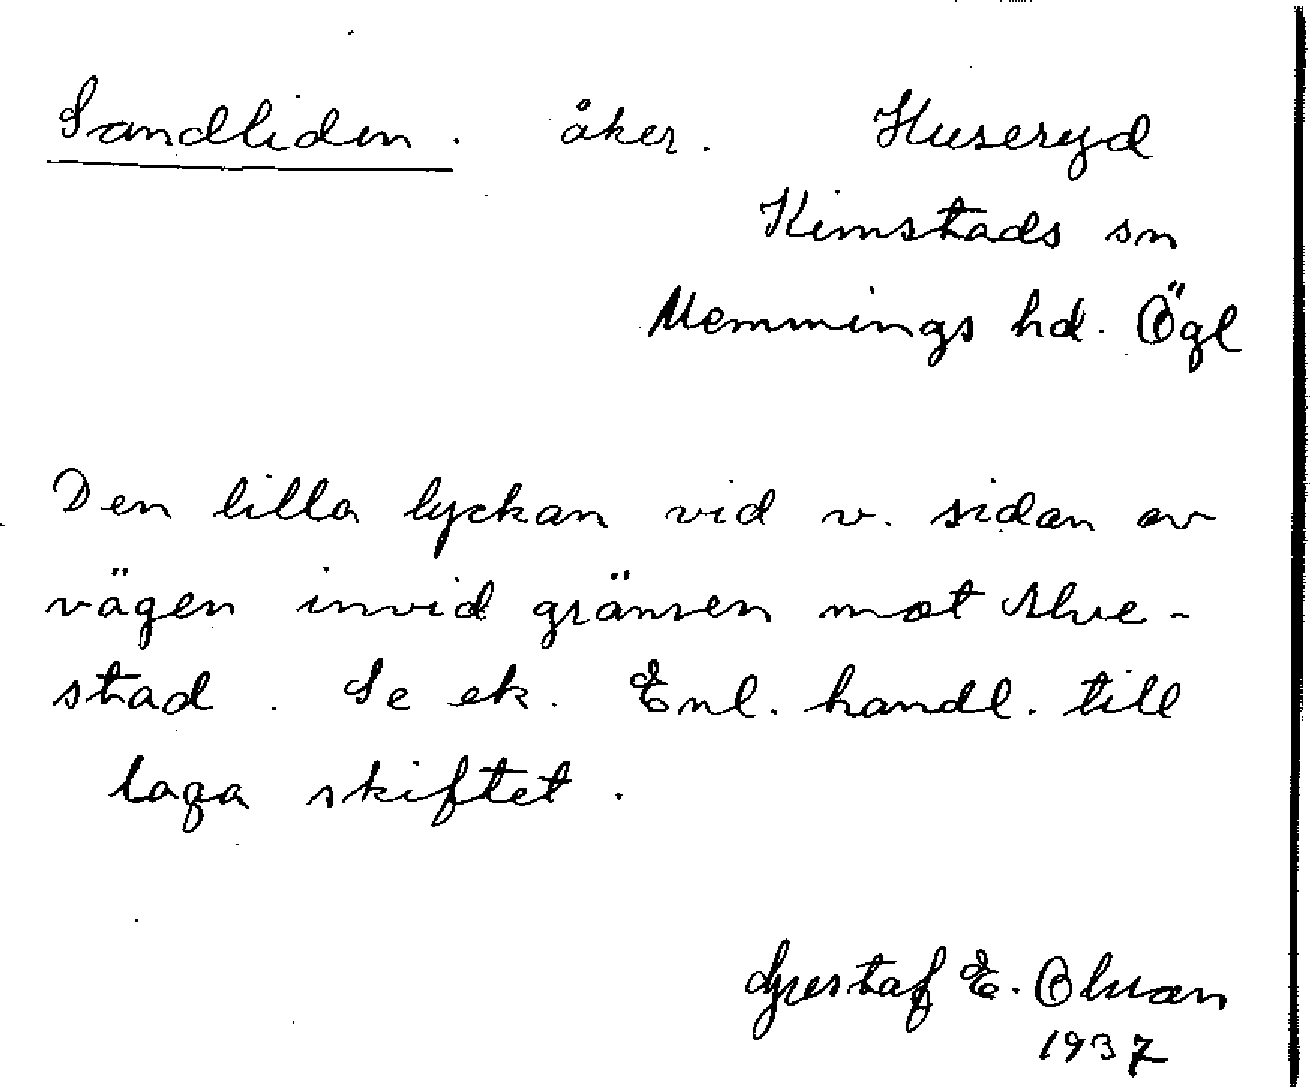 Sandliden. åker. Huseryd
Kimstads sn
Memmings hd. Ögl
Den lilla lyckan vid v. sidan av
vägen invid gränsen mot Alve-
stad. Se ek. Enl. handl. till
laga skiftet.
Gustaf E.
1937